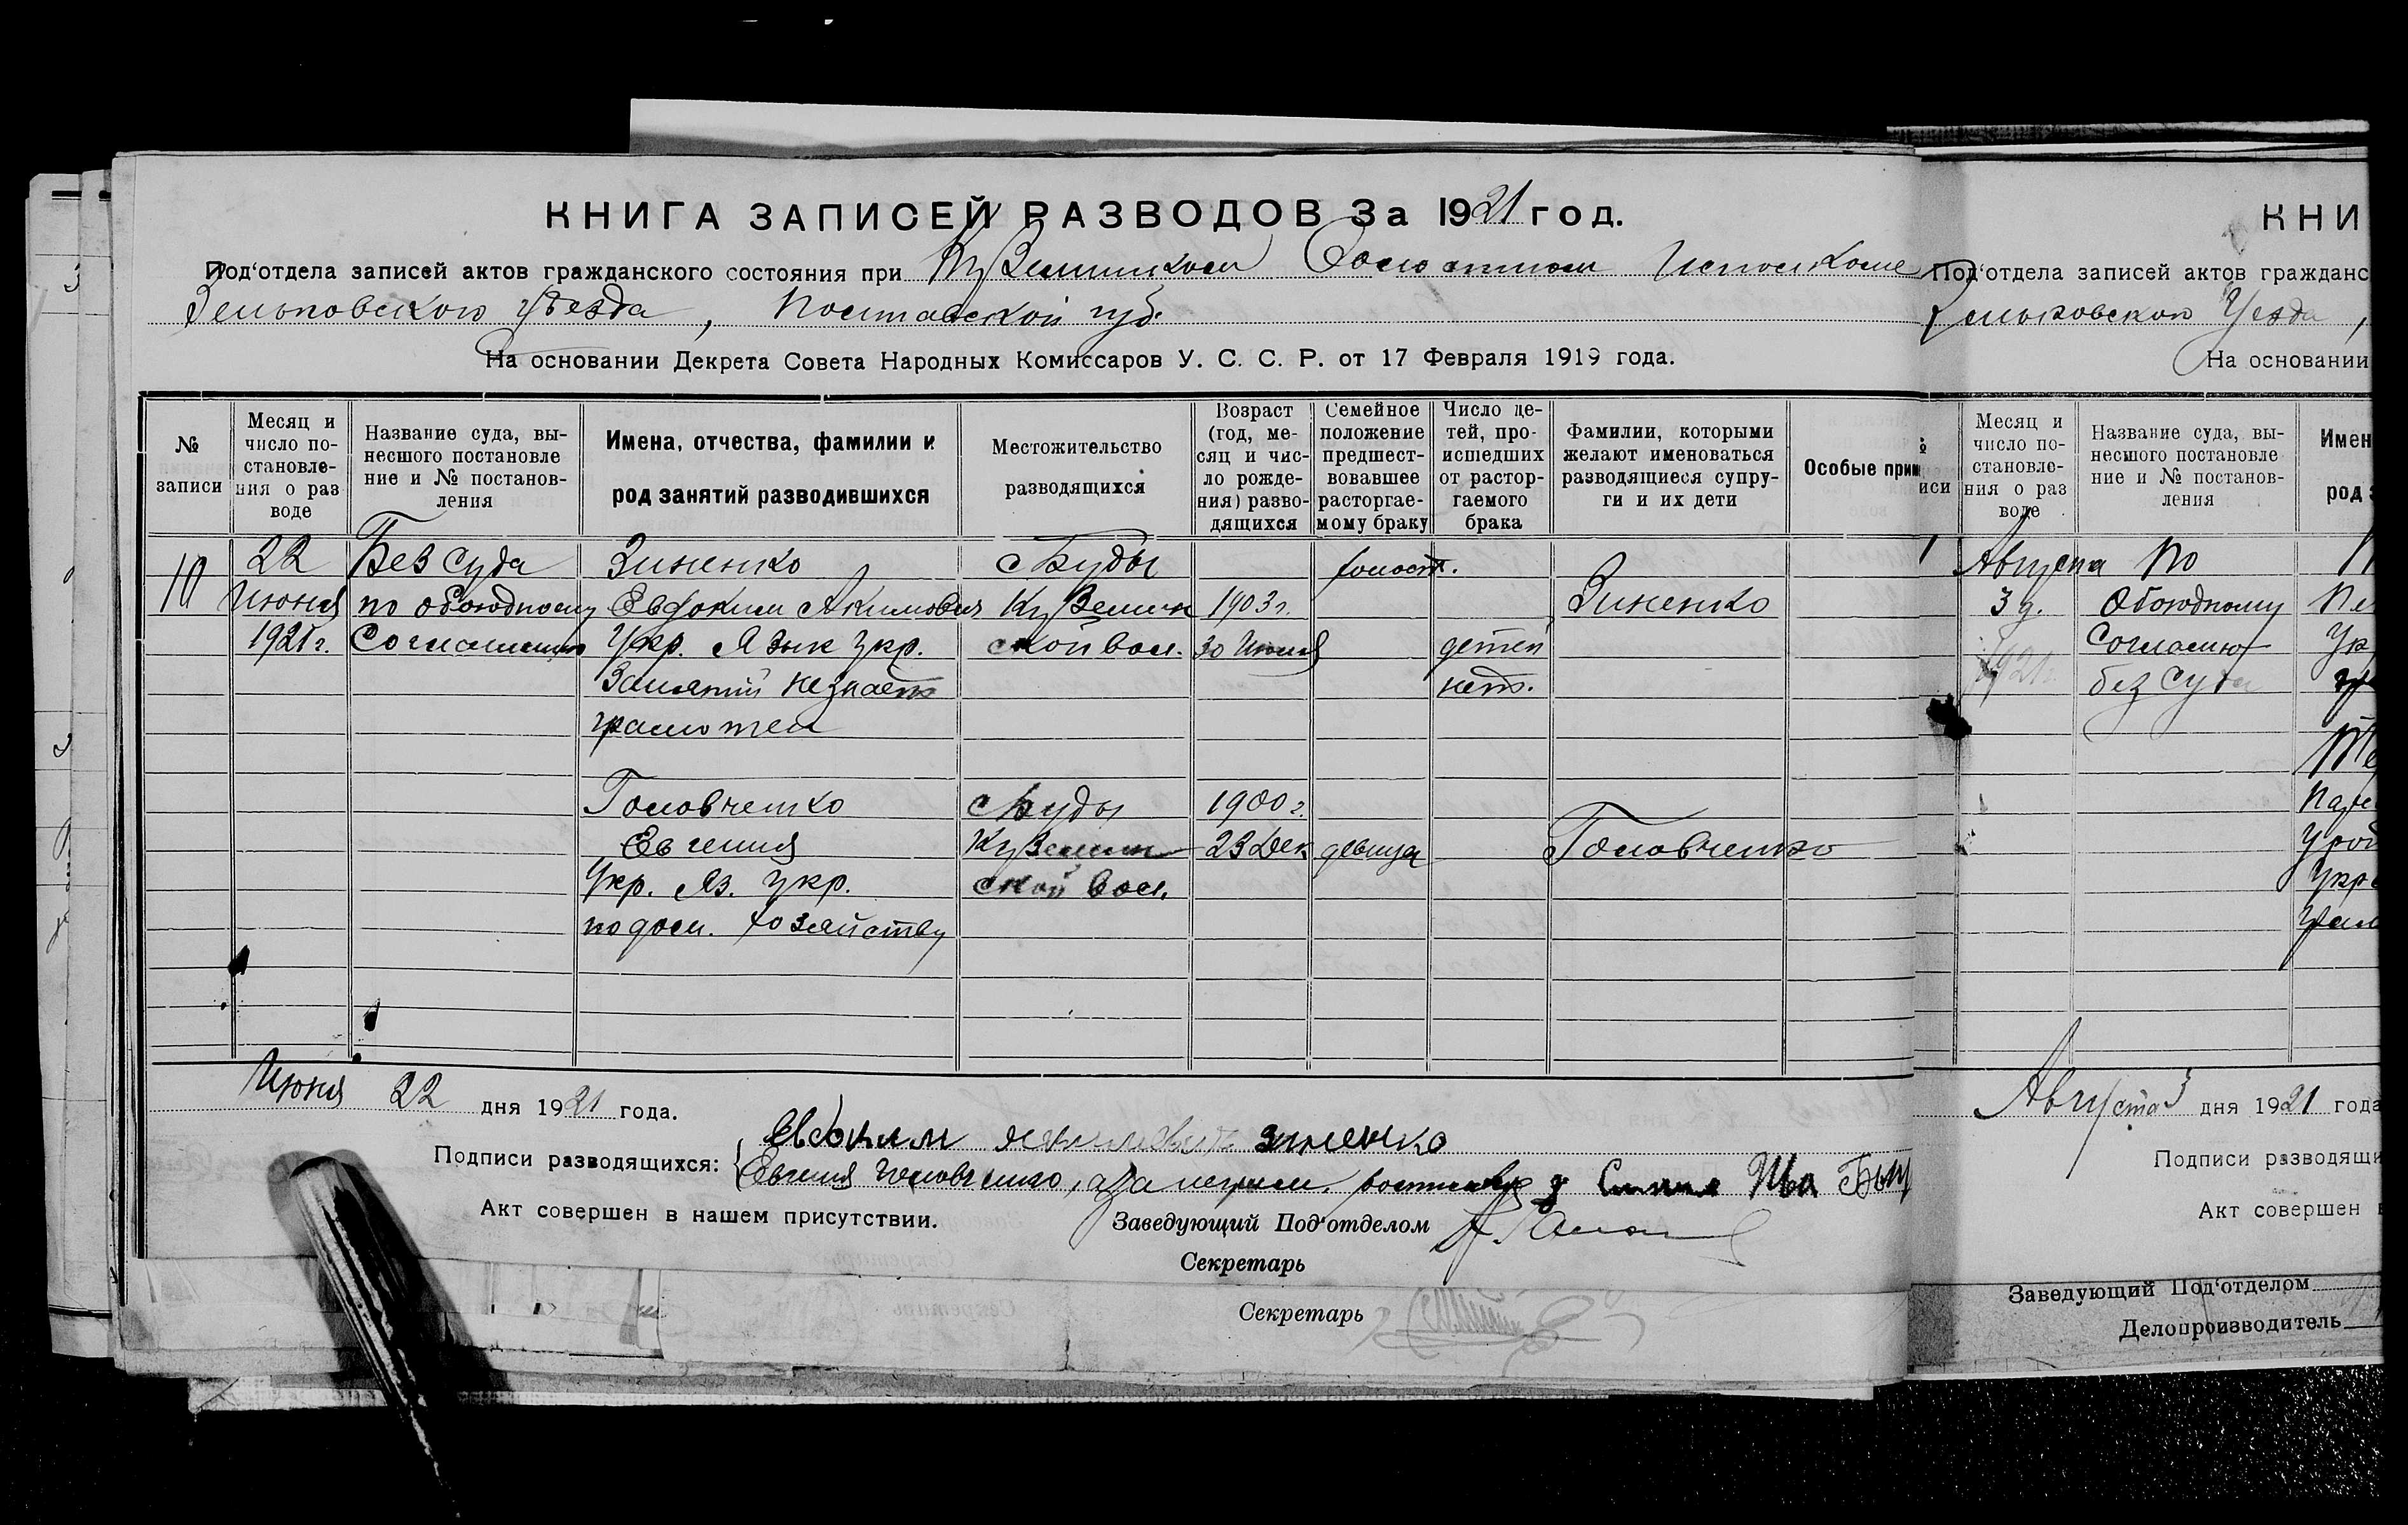 КНИГА ЗАПИСЕЙ РАЗВОДОВ За 1921 год.
Под'отдела записей актов гражданского состояния при Куземинском Волостном Исполкоме
Зеньковского уезда, Полтавской губ.
На основании Декрета Совета Народных Комиссаров У. С. С. Р. от 17 Февраля 1919 года.
№ записи
Месяц и число по-становле-ния о раз воде
Название суда, вы-несшого постановле ние и № постанов-ления
Имена, отчества, фамилии и род занятий разводившихся
Местожительство разводящихся
Возраст (год, ме-сяц и чис-ло рожде-ния) разво-дящихся
Семейное положение предшест-вовавшее расторгае-мому браку
Число де-тей, про-исшедших от растор-гаемого брака
Фамилии, которыми желают именоваться разводящиеся супру-ги и их дети
Особые прим
10
22 Июня 1921 г.
Без суда
по обоюдному
Согласию
Зиненко
Евдоким Акимович
Укр. Язык укр.
Занятий не знает
грамотен
с Буды
Куземин
ской вол.
1903 г.
30 Июля
холост.
детей
нет.
Зиненко
Головченко
Евгения
Укр. Яз. укр.
по дом. хозяйству
с Буды
Куземин
ской вол.
1900 г.
23 Дек
девица
Головченко
Июня 22 дня 1921 года.
Подписи разводящихся:
Евдоким Зиненко
Евгения Головченко, а за неграм.
Акт совершен в нашем присутствии.
Заведующий Под'отделом
Секретарь
Секретарь
КНИ
Под'отдела записей актов гражданс
Зеньковского Уезда,
На основании
иси
Месяц и число по-становле-ния о раз воде
Название суда, вы-несшого постановле ние и № постанов-ления
Имен
род з
Августа
3 д.
1921
По
Обоюдному
Согласию
без суда
Августа 3 дня 1921 года
Подписи разводящи
Акт совершен в
Заведующий Под'отделом
Делопроизводитель